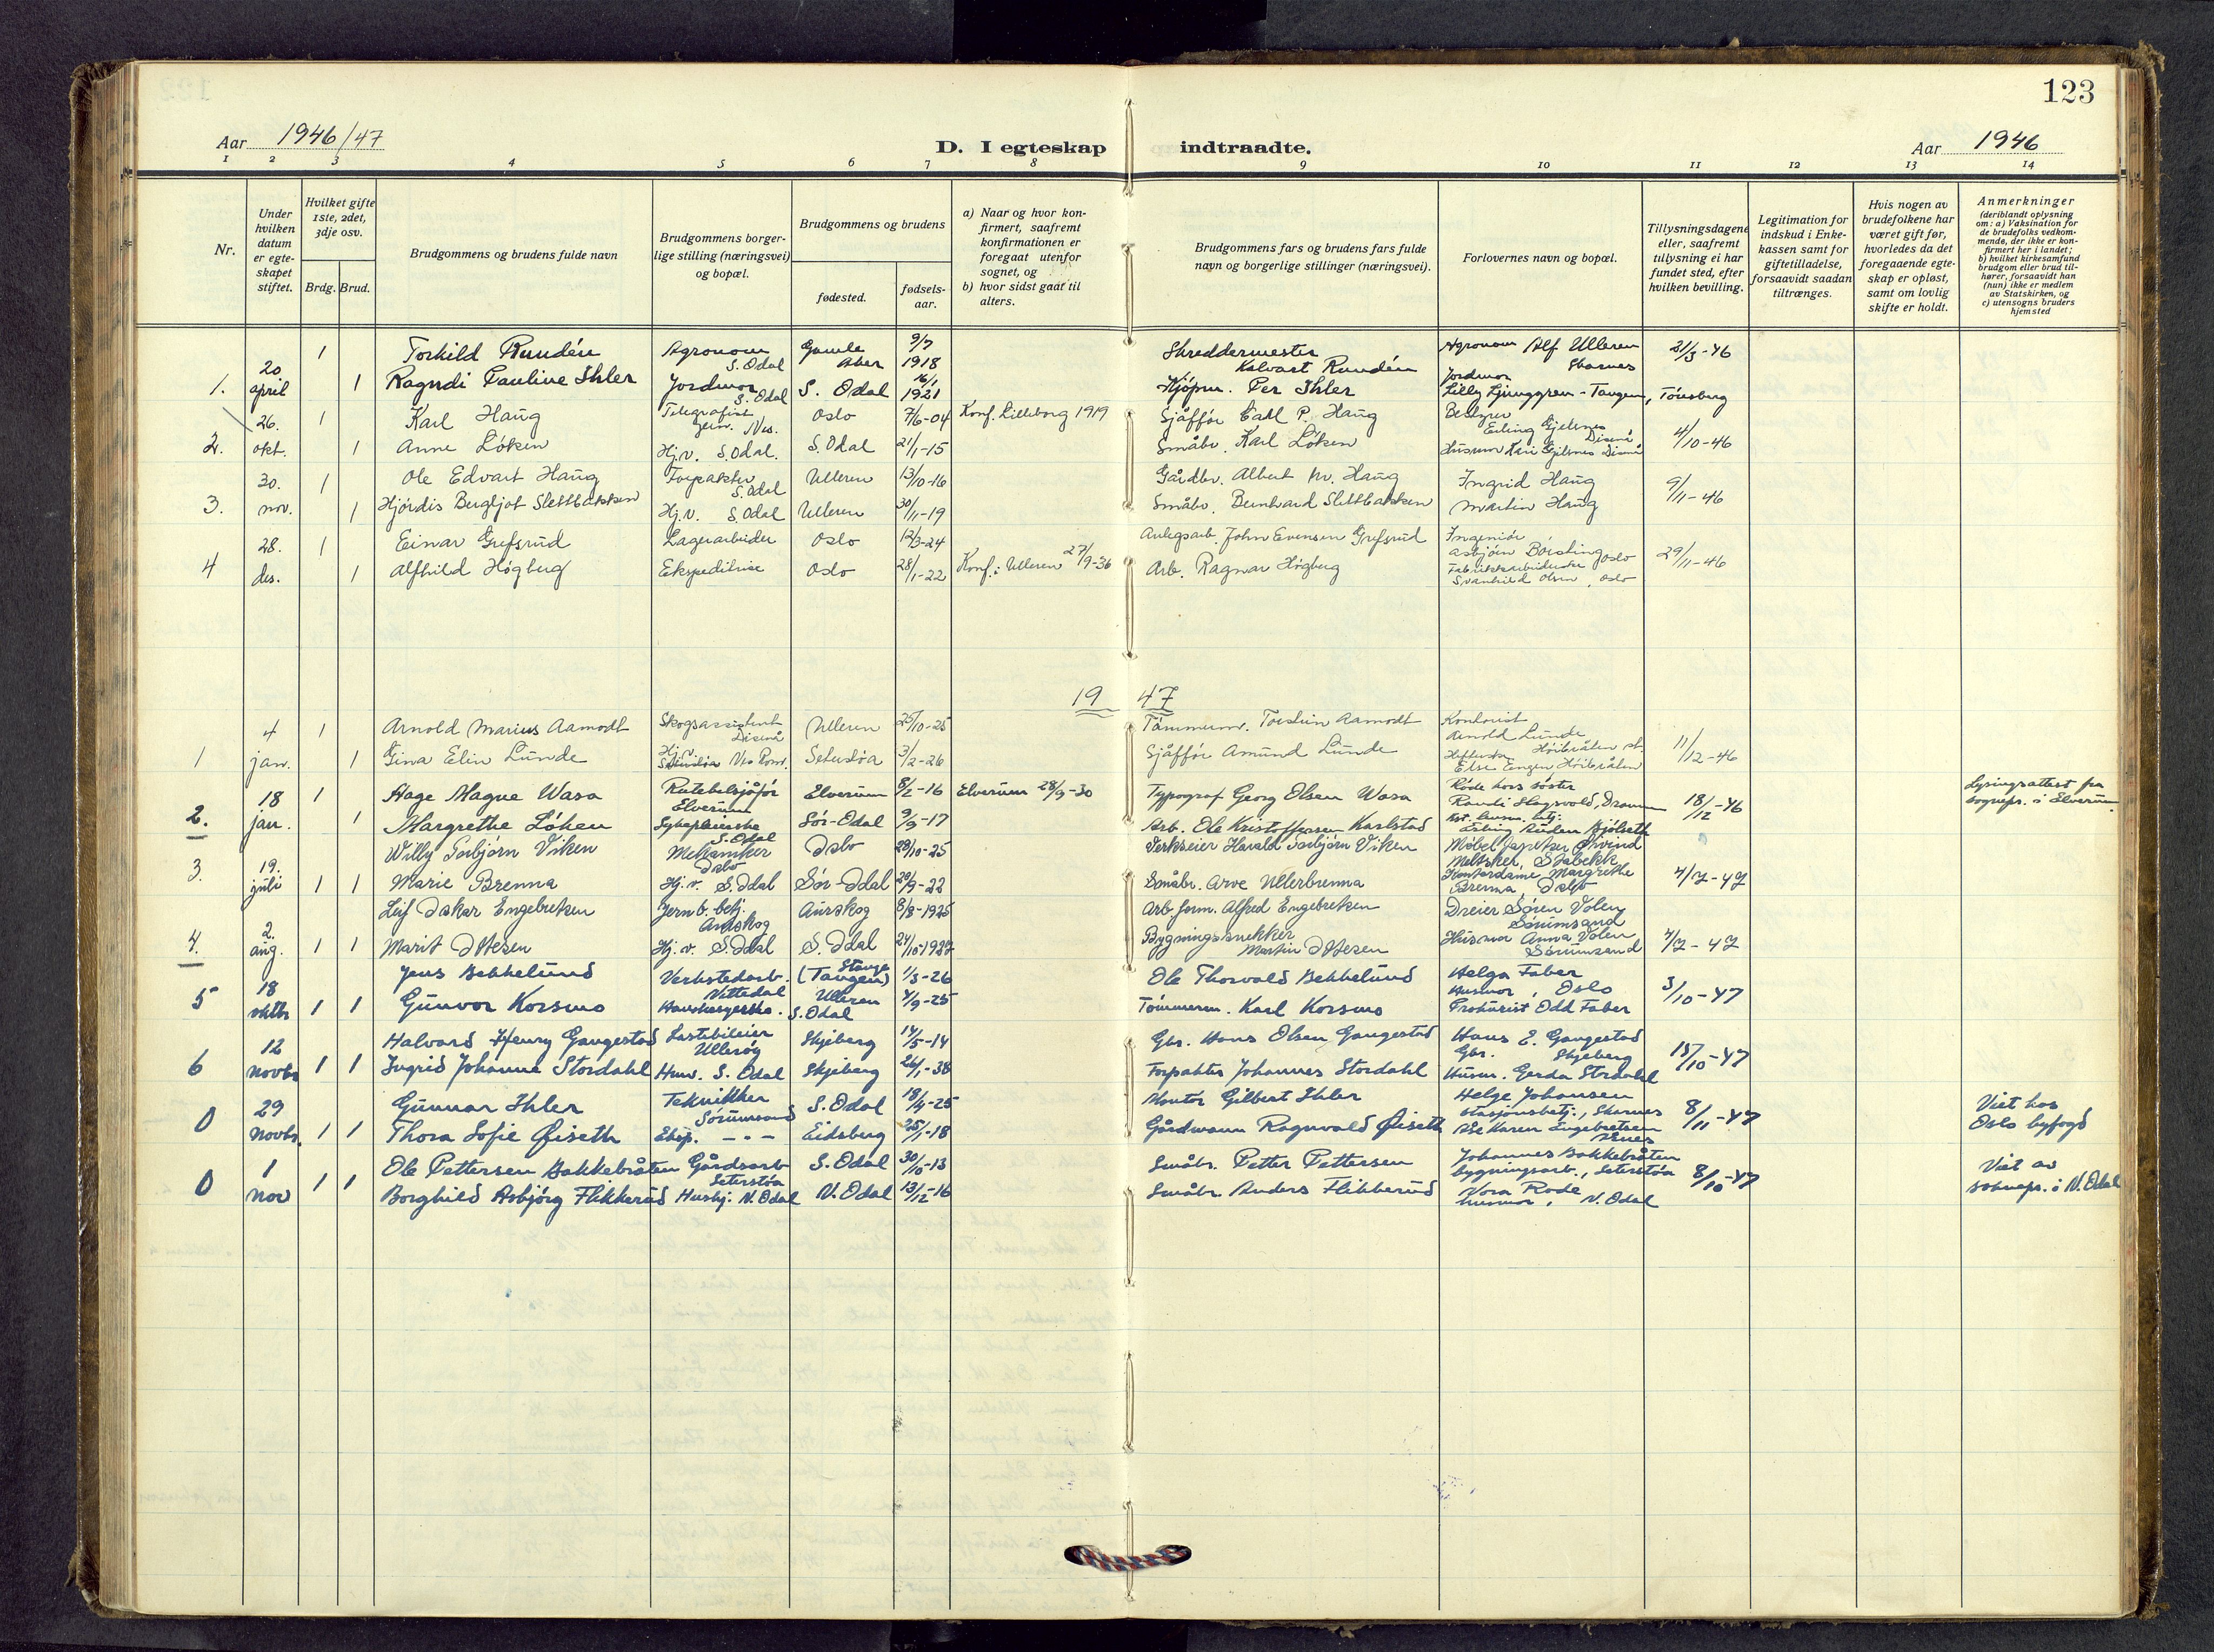 123
Aar 1946/47
D. I egteskap indtraadte.
Aar 1946
1 2 3 4 5 6 7 8 9 10 11 12 13 14
Nr.
Under hvilken datum er egteskapet stiftet.
Hvilket gifte 1ste, 2det, 3dje osv.
Brdg. Brud.
Brudgommens og brudens fulde navn
Brudgommens borgerlige stilling (næringsvei) og bopæl.
Brudgommens og brudens
fødested.
fødselsaar.
a) Naar og hvor konfirmert, saafremt konfirmationen er foregaat utenfor sognet, og
b) hvor sidst gaat til alters.
Brudgommens fars og brudens fars fulde navn og borgerlige stillinger (næringsvei).
Forlovernes navn og bopæl.
Tillysningsdagene eller, saafremt tillysning ei har fundet sted, efter hvilken bevilling.
Legitimation for indskud i Enkekassen samt for giftetilladelse, forsaavidt saadan tiltrænges.
Hvis nogen av brudefolkene har været gift før, hvorledes da det foregaaende egteskap er opløst, samt om lovlig skifte er holdt.
Anmerkninger
(deriblandt oplysning om: a) Vaksination for de brudefolks vedkommende, der ikke er konfirmert her i landet; b) hvilket kirkesamfund brudgom eller brud tilhører, forsaavidt han (hun) ikke er medlem av Statskirken, og c) utensogns bruders hjemsted
1 Torkild Rundén Agronom S. Odal Gamle Aker 9/7 1918 Skreddermester Halvart Rundén Agronom Alf Ulleren Skarnes 31/3-46
1. 20 april 1 Ragndi Pauline Ihler Jordmor S. Odal S. Odal 16/1 1921 Kjøpm. Per Ihler Jordmor Lilly Ljunggren - Tangen, Tönsberg
26. 1 Karl Haug Telegrafist Nes. Oslo 7/6-04 Konf. Lilleborg 1919 Sjåffør Carl P. Haug Bestyrer Erling Gjelsnes Disenå
2. okt. 1 Anne Løken Hj.v. S. Odal. S. Odal 21/1-15 Småbr. Karl Löken Husmor Kari Gjelsnes Disenå 4/10-46
30. 1 Ole Edvart Haug Forpakter S. Odal Ulleren 13/10-16 Gårdbr. Albert M. Haug Ingrid Haug
3. nov. 1 Hjördis Bergljot Slettbakken Hj.v. S. Odal Ulleren 30/11-19 Småbr. Bernhard Slettbakken Martin Haug 9/11-46
28. 1 Einar Grefsrud Lagerarbeider Oslo 12/3-24 Anlegsarb. John Evensen Grefsrud Ingeniör Asbjörn Börsting Oslo
4 des. 1 Alfhild Högberg Ekspeditrise Oslo 28/1-22 Konf. i Ulleren 27/9-36 Arb. Ragnar Högberg Fabrikkarbeiderske Svanhild Olsen, Oslo 29/11-46
19 47
4 1 Arnold Marius Aamodt Skogsassistent Disenå Ulleren 25/10-25 Tömmerm. Torstein Aamodt Kontorist Arnold Lunde Höibråten st.
1 jan. 1 Gina Elin Lunde Hj.v. Seterstöa Ves Rom. Seterstöa 3/2-26 Sjåfför Amund Lunde Else Engen Höibråten 11/12-46
18 1 Aage Magne Wasa Rutebilsjåför Elverum Elverum 8/2-16 Elverum 28/9-30 Typograf Georg Olsen Wasa Röde kors söster Randi Slagsvold, Dramm
2. jan. 1 Margrethe Löken Sykepleierske S. Odal Sör-Odal 9/9-17 Arb. Ole Kristoffersen Karlstad Erling Ruden Hjölseth 18/12-46 Lysingsattest fra sognepr. i Elverum.
Willy Torbjörn Viken Mekaniker Oslo Oslo 28/10-25 Verkseier Harald Torbjörn Viken Möbeltapetser Öivind Meltsker, Stabekk
3. 19. juli 1 1 Marie Brenna Hj.v. S. Odal Sör-Odal 20/9-22 Småbr. Arve Ullerbrenna Kontordame Margrethe Brenna, Oslo 4/7-47
Leif Oskar Engebretsen Jernb. betj. Aurskog Aurskog 8/8-1925 Arb. form. Alfred Engebretsen Dreier Sören Volen Sörumsand
4. 2. aug. 1 1 Marit Ottesen Hj.v. S. Odal S. Odal 24/10-1927 Bygningssnekker Martin Ottesen Husmor Anna Volen Sörumsand 4/7-47
Jens Bekkelund Verkstedarb. Nittedal (Tangen) Stange 1/3-26 Ole Thorvald Bekkelund Helga Faber Husmor, Oslo
5 18 oktb 1 1 Gunvor Korsmo Ulleren S. Odal 4/9-25 Tömmerm. Karl Korsmo Prokurist Odd Faber 3/10-47
Halvard Henry Gangestad Lastebileier Ullerøy Skjeberg 14/5-14 Gbr. Hans Olsen Gangestad Hans E. Gangestad Gbr. Skjeberg
6 12 novbr 1 1 Ingrid Johanne Stordahl Husv. S. Odal Skjeberg 26/1-38 Forpakter Johannes Stordahl Husm. Gerda Stordahl 15/10-47
Gunnar Ihler Tekniker Sörumsand S. Odal 18/4-25 Kontor Gilbert Ihler Helge Johansen stasjonsbetj., Skarnes
0 29 novbr. 1 1 Thora Sofie Öiseth Eksp. - " - Eidsberg 25/1-18 Gårdmann Ragnvald Öiseth Åse Karen Engebretsen Årnes 8/11-47 Viet hos Oslo byfogd
Ole Pettersen Bakkebråten Gårdsarb Seterstöa S. Odal 30/10-13 Småbr. Petter Pettersen Johannes Bakkebråten bygningsarb., Seterstöa
0 1 Nov 1 1 Borghild Asbjørg Flikkerud Hushj. N. Odal N. Odal 13/12-16 Småbr. Anders Flikkerud Nora Rode husmor, N. Odal 8/10-47 Viet av soknepr. i N. Odal